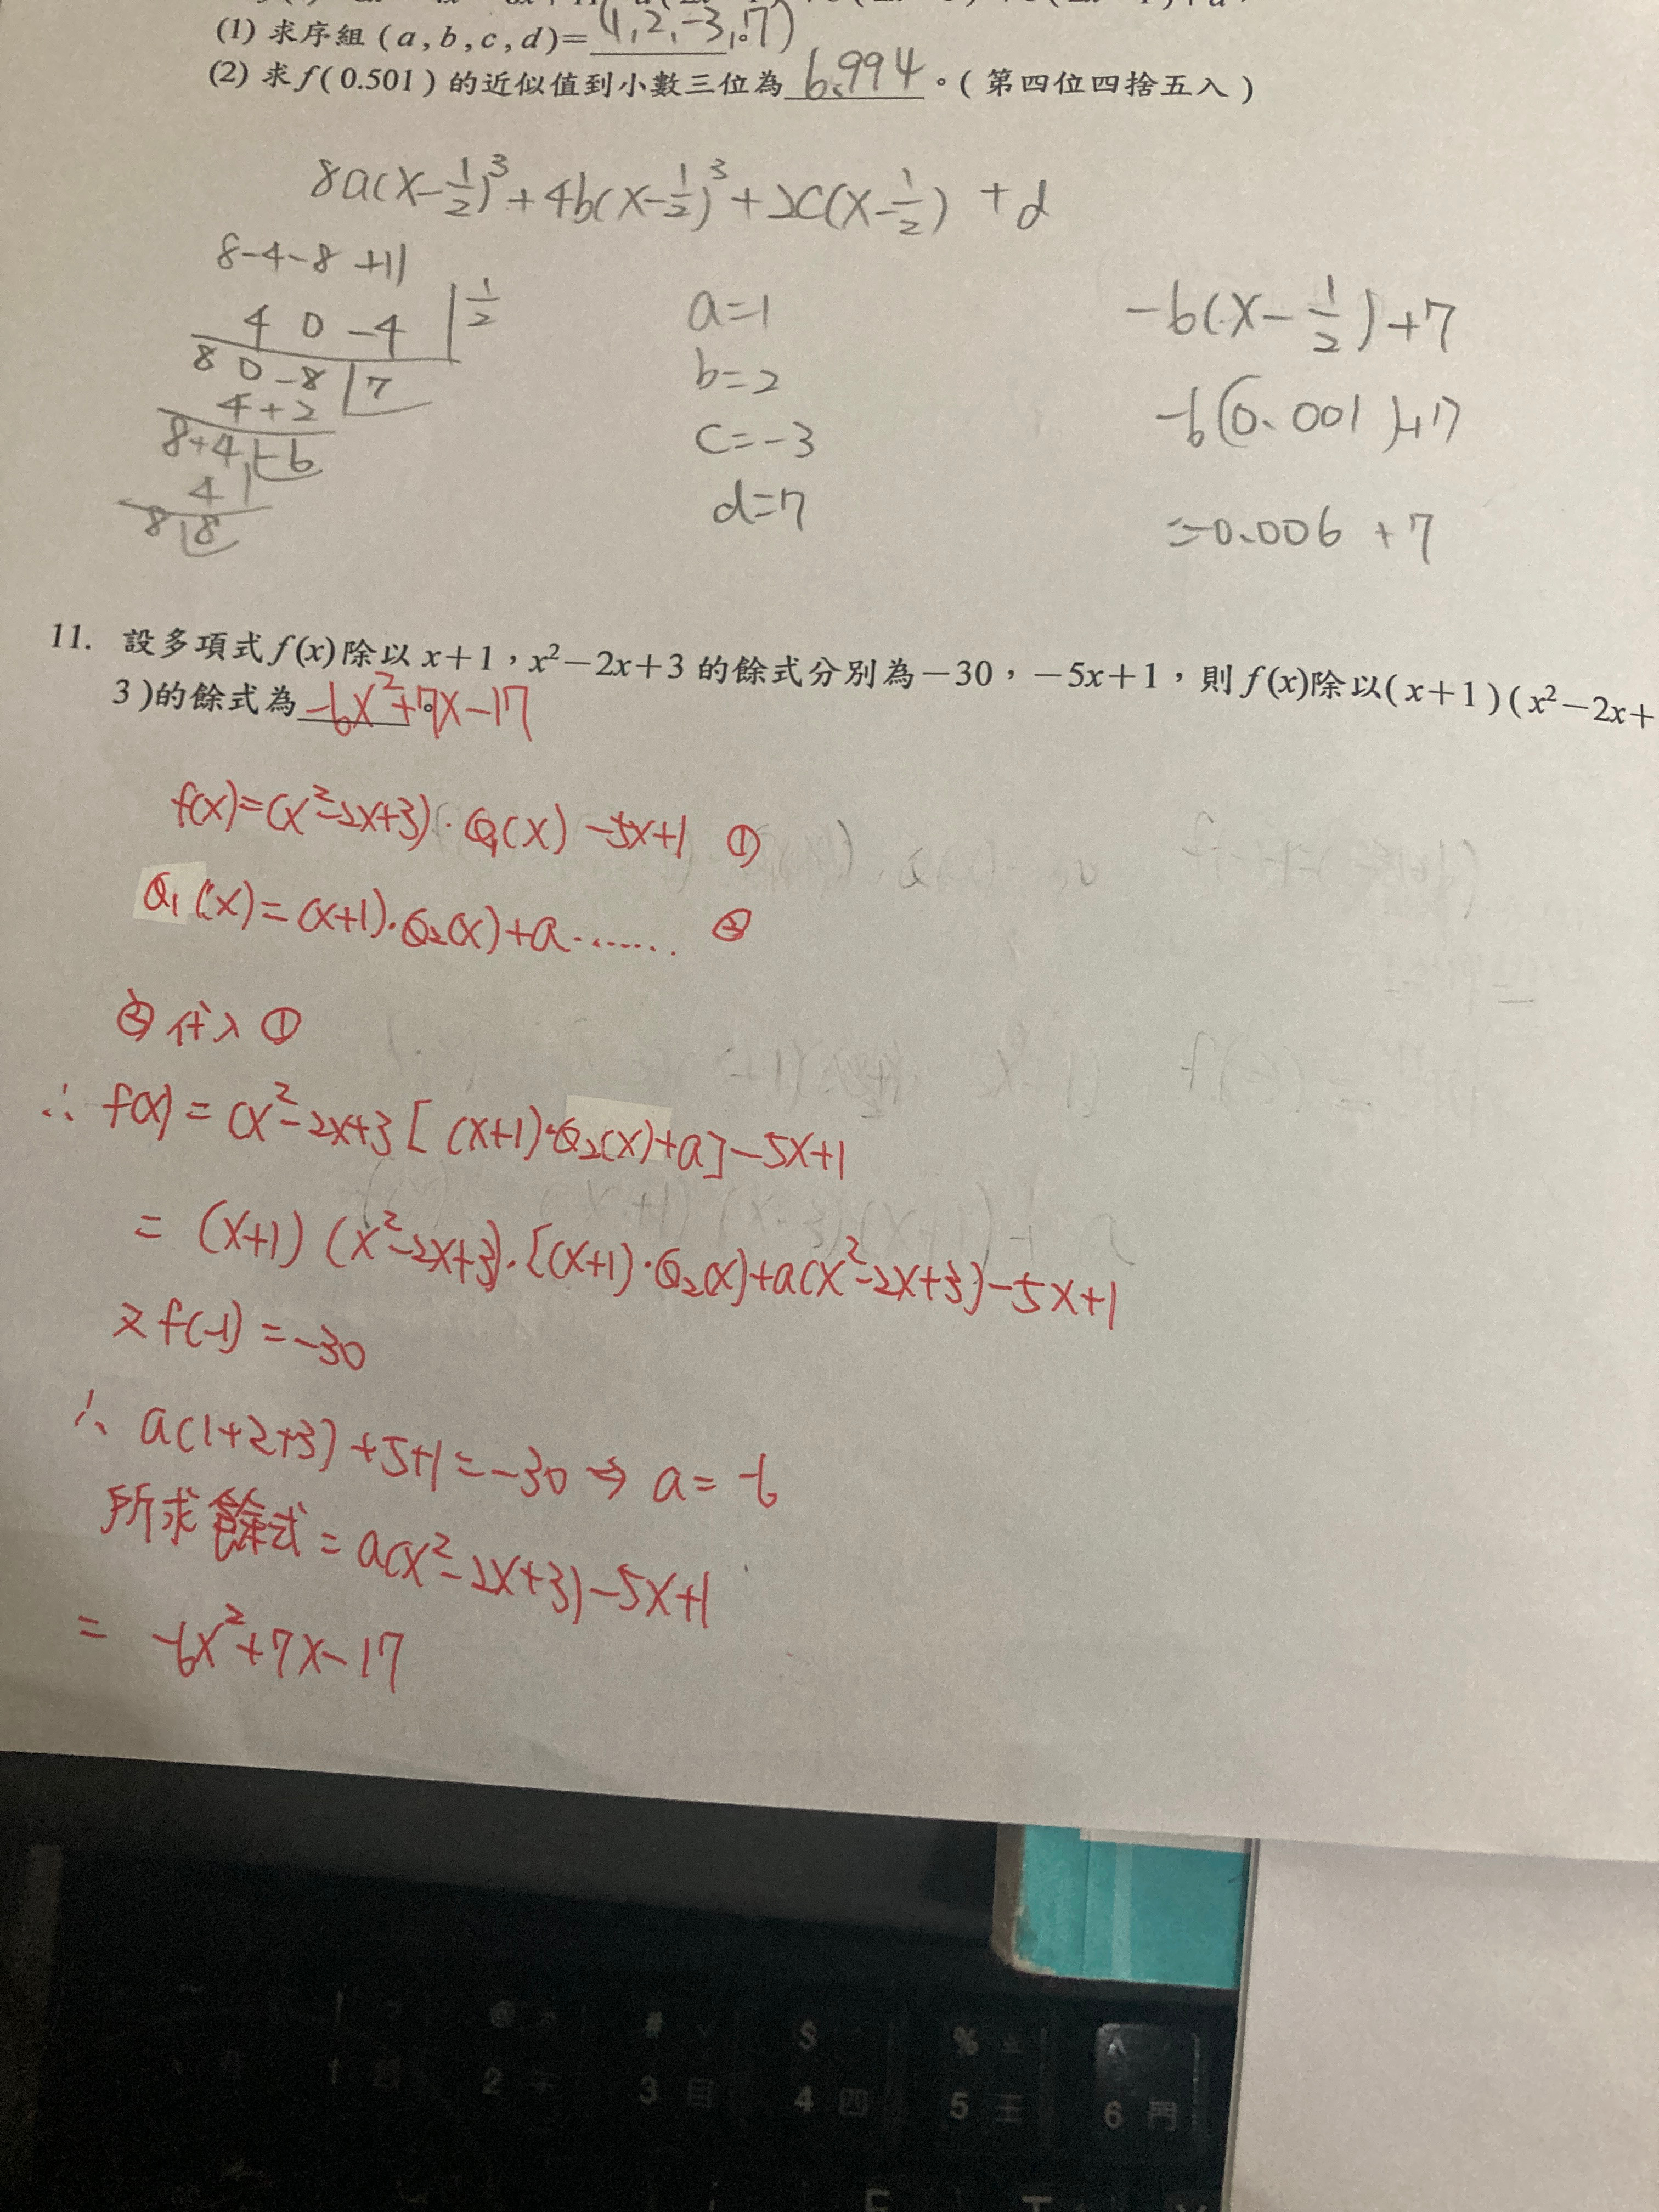 (1) 求序組 (a,b,c,d)=(1,2,-3,7)。
(2) 求 f(0.501) 的近似值到小數三位為 6.994 。(第四位四捨五入)
8a(x-1/2)³+4b(x-1/2)³+2c(x-1/2) +d
8-4-8+11
4 0 -4 1/2
8 0 -8 7
4+2
8+4 -6
4
8 8
a=1
b=2
c=-3
d=7
-6(x-1/2)+7
-6(0.001)+7
=-0.006 +7
11. 設多項式 f(x)除以 x+1,x²-2x+3 的餘式分別為-30,-5x+1,則 f(x)除以(x+1)(x²-2x+
3)的餘式為 -6x²+7x-17。
f(x)=(x²-2x+3)·Q₁(x) -5x+1 ①
Q₁(x)=(x+1)·Q₂(x)+a……. ②
②代入①
∴ f(x)=(x²-2x+3[(x+1)·Q₂(x)+a]-5x+1
= (x+1)(x²-2x+3)·[(x+1)·Q₂(x)+a(x²-2x+3)-5x+1
又f(-1)=-30
∴ a(1+2+3)+5+1=-30⇒a=-6
所求餘式=a(x²-2x+3)-5x+1
= -6x²+7x-17
@
#
$
%
^
1
2
3 目
4 四
5 王
6 門